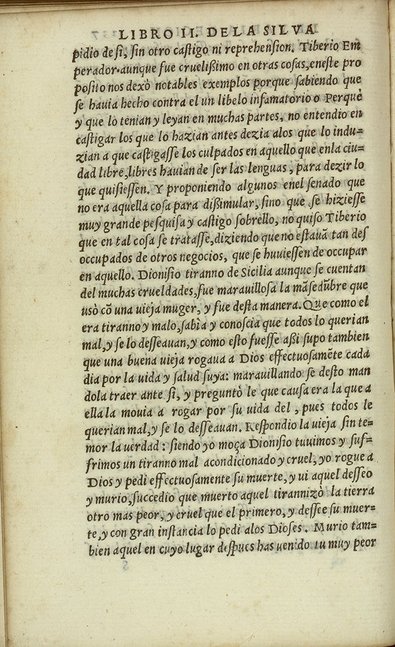 LIBRO II. DE LA SILVA
pidio de si, sin otro castigo ni reprehension. Tiberio Em
perador aunque fue cruelißimo en otras cosas, eneste pro
posito nos dexò notables exemplos porque sabiendo que
se hauia hecho contra el un libelo infamatorio o Perque
y que lo tenian y leyan en muchas partes, no entendio en
castigar los que lo hazian antes dezia alos que lo indu-
zian a que castigasse los culpados en aquello que enla ciu-
dad libre, libres hauian de ser las lenguas, para dezir lo
que quisiessen. Y proponiendo algunos enel senado que
no era aquella cosa para dißimular, sino que se hiziesse
muy grande pesquisa y castigo sobrello, no quiso Tiberio
que en tal cosa se tratasse, diziendo que no estauã tan des
occupados de otros negocios, que se huuiessen de occupar
en aquello. Dionisio tiranno de Sicilia aunque se cuentan
del muchas crueldades, fue marauillosa la mãsedũbre que
usò cõ una vieja muger, y fue desta manera. Que como el
era tiranno y malo, sabia y conoscia que todos lo querian
mal, y se lo desseauan, y como esto fuesse aßi supo tambien
que una buena vieja rogaua a Dios effectuosamẽte cada
dia por la vida y salud suya: marauillando se desto man
dola traer ante si, y preguntò le que causa era la que a
ella la mouia a rogar por su vida del, pues todos le
querian mal, y se lo desseauan. Respondio la vieja sin te-
mor la verdad: siendo yo moça Dionisio tuuimos y suf-
frimos un tiranno mal acondicionado y cruel, yo rogue a
Dios y pedi effectuosamente su muerte, y ui aquel desseo
y murio, succedio que muerto aquel tirannizò la tierra
otro mas peor, y cruel que el primero, y dessee su muer-
te, y con gran instancia lo pedi alos Dioses. Murio tam-
bien aquel en cuyo lugar despues has venido tu muy peor